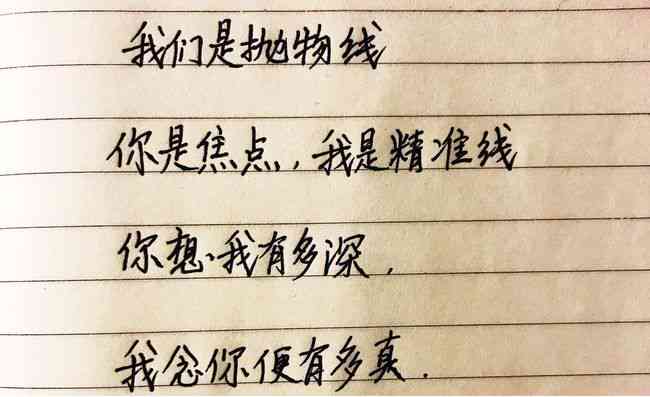 我们是抛物线
你是焦点,我是精准线
你想我有多深,
我念你便有多真.